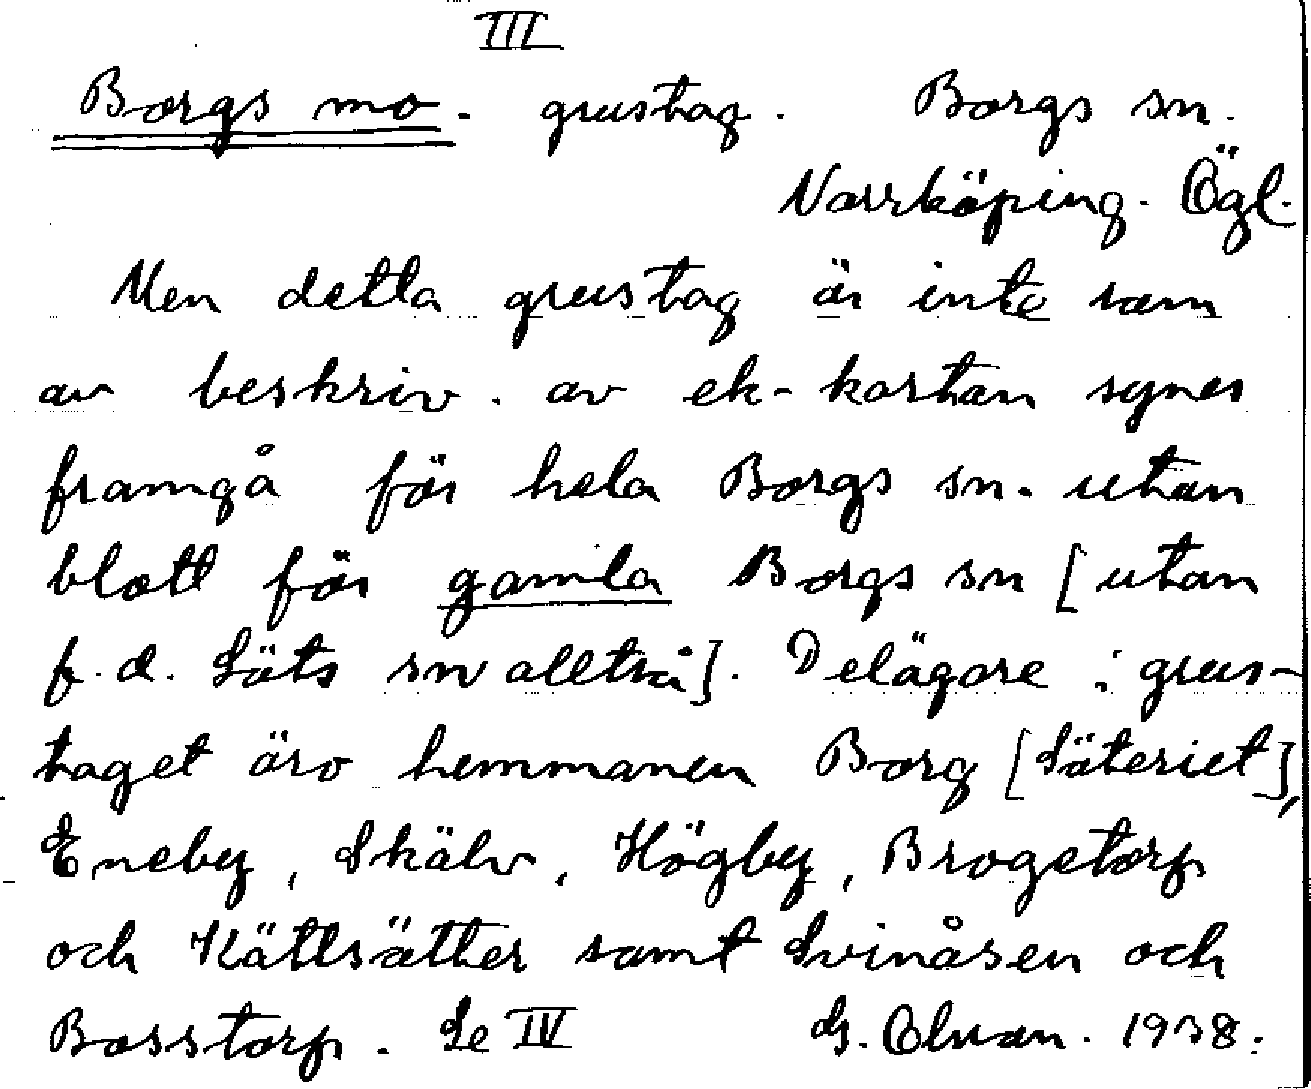 III
Borgs mo. grustag. Borgs sn.
Norrköping. Ögl.
Men detta grustag är inte som
av beskriv. av ek-kartan synes
framgå för hela Borgs sn. utan
blott för gamla Borgs sn [utan
f.d. Löts sn alltså]. Delägare i grus-
taget äro hemmanen Borg [Säteriet],
Eneby, Skälv, Högby, Brogetorp
och Kättsätter samt Svinåsen och
Bosstorp. Se IV G. 1938.